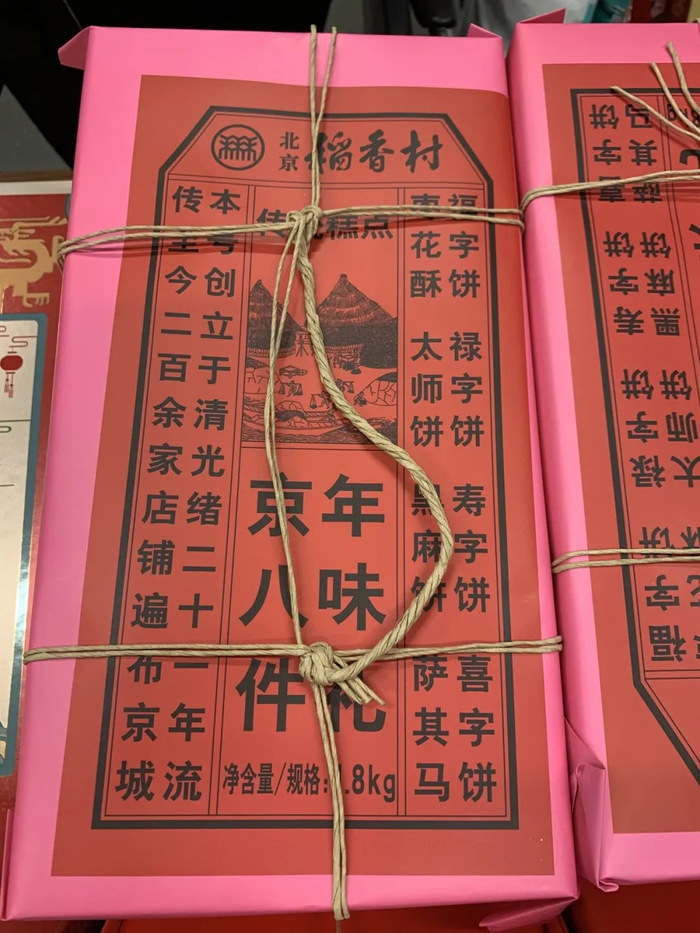 北京稻香村
传统糕点
福字饼 禄字饼 寿字饼 喜字饼
枣花酥 太师饼 黑麻饼 萨其马
年味礼
京八件
本号创立于清光绪二十一年流
传至今二百余家店铺遍布京城
净含量/规格:1.8kg
福字饼 禄字饼 寿字饼 喜字饼
太师饼 黑麻饼 萨其马